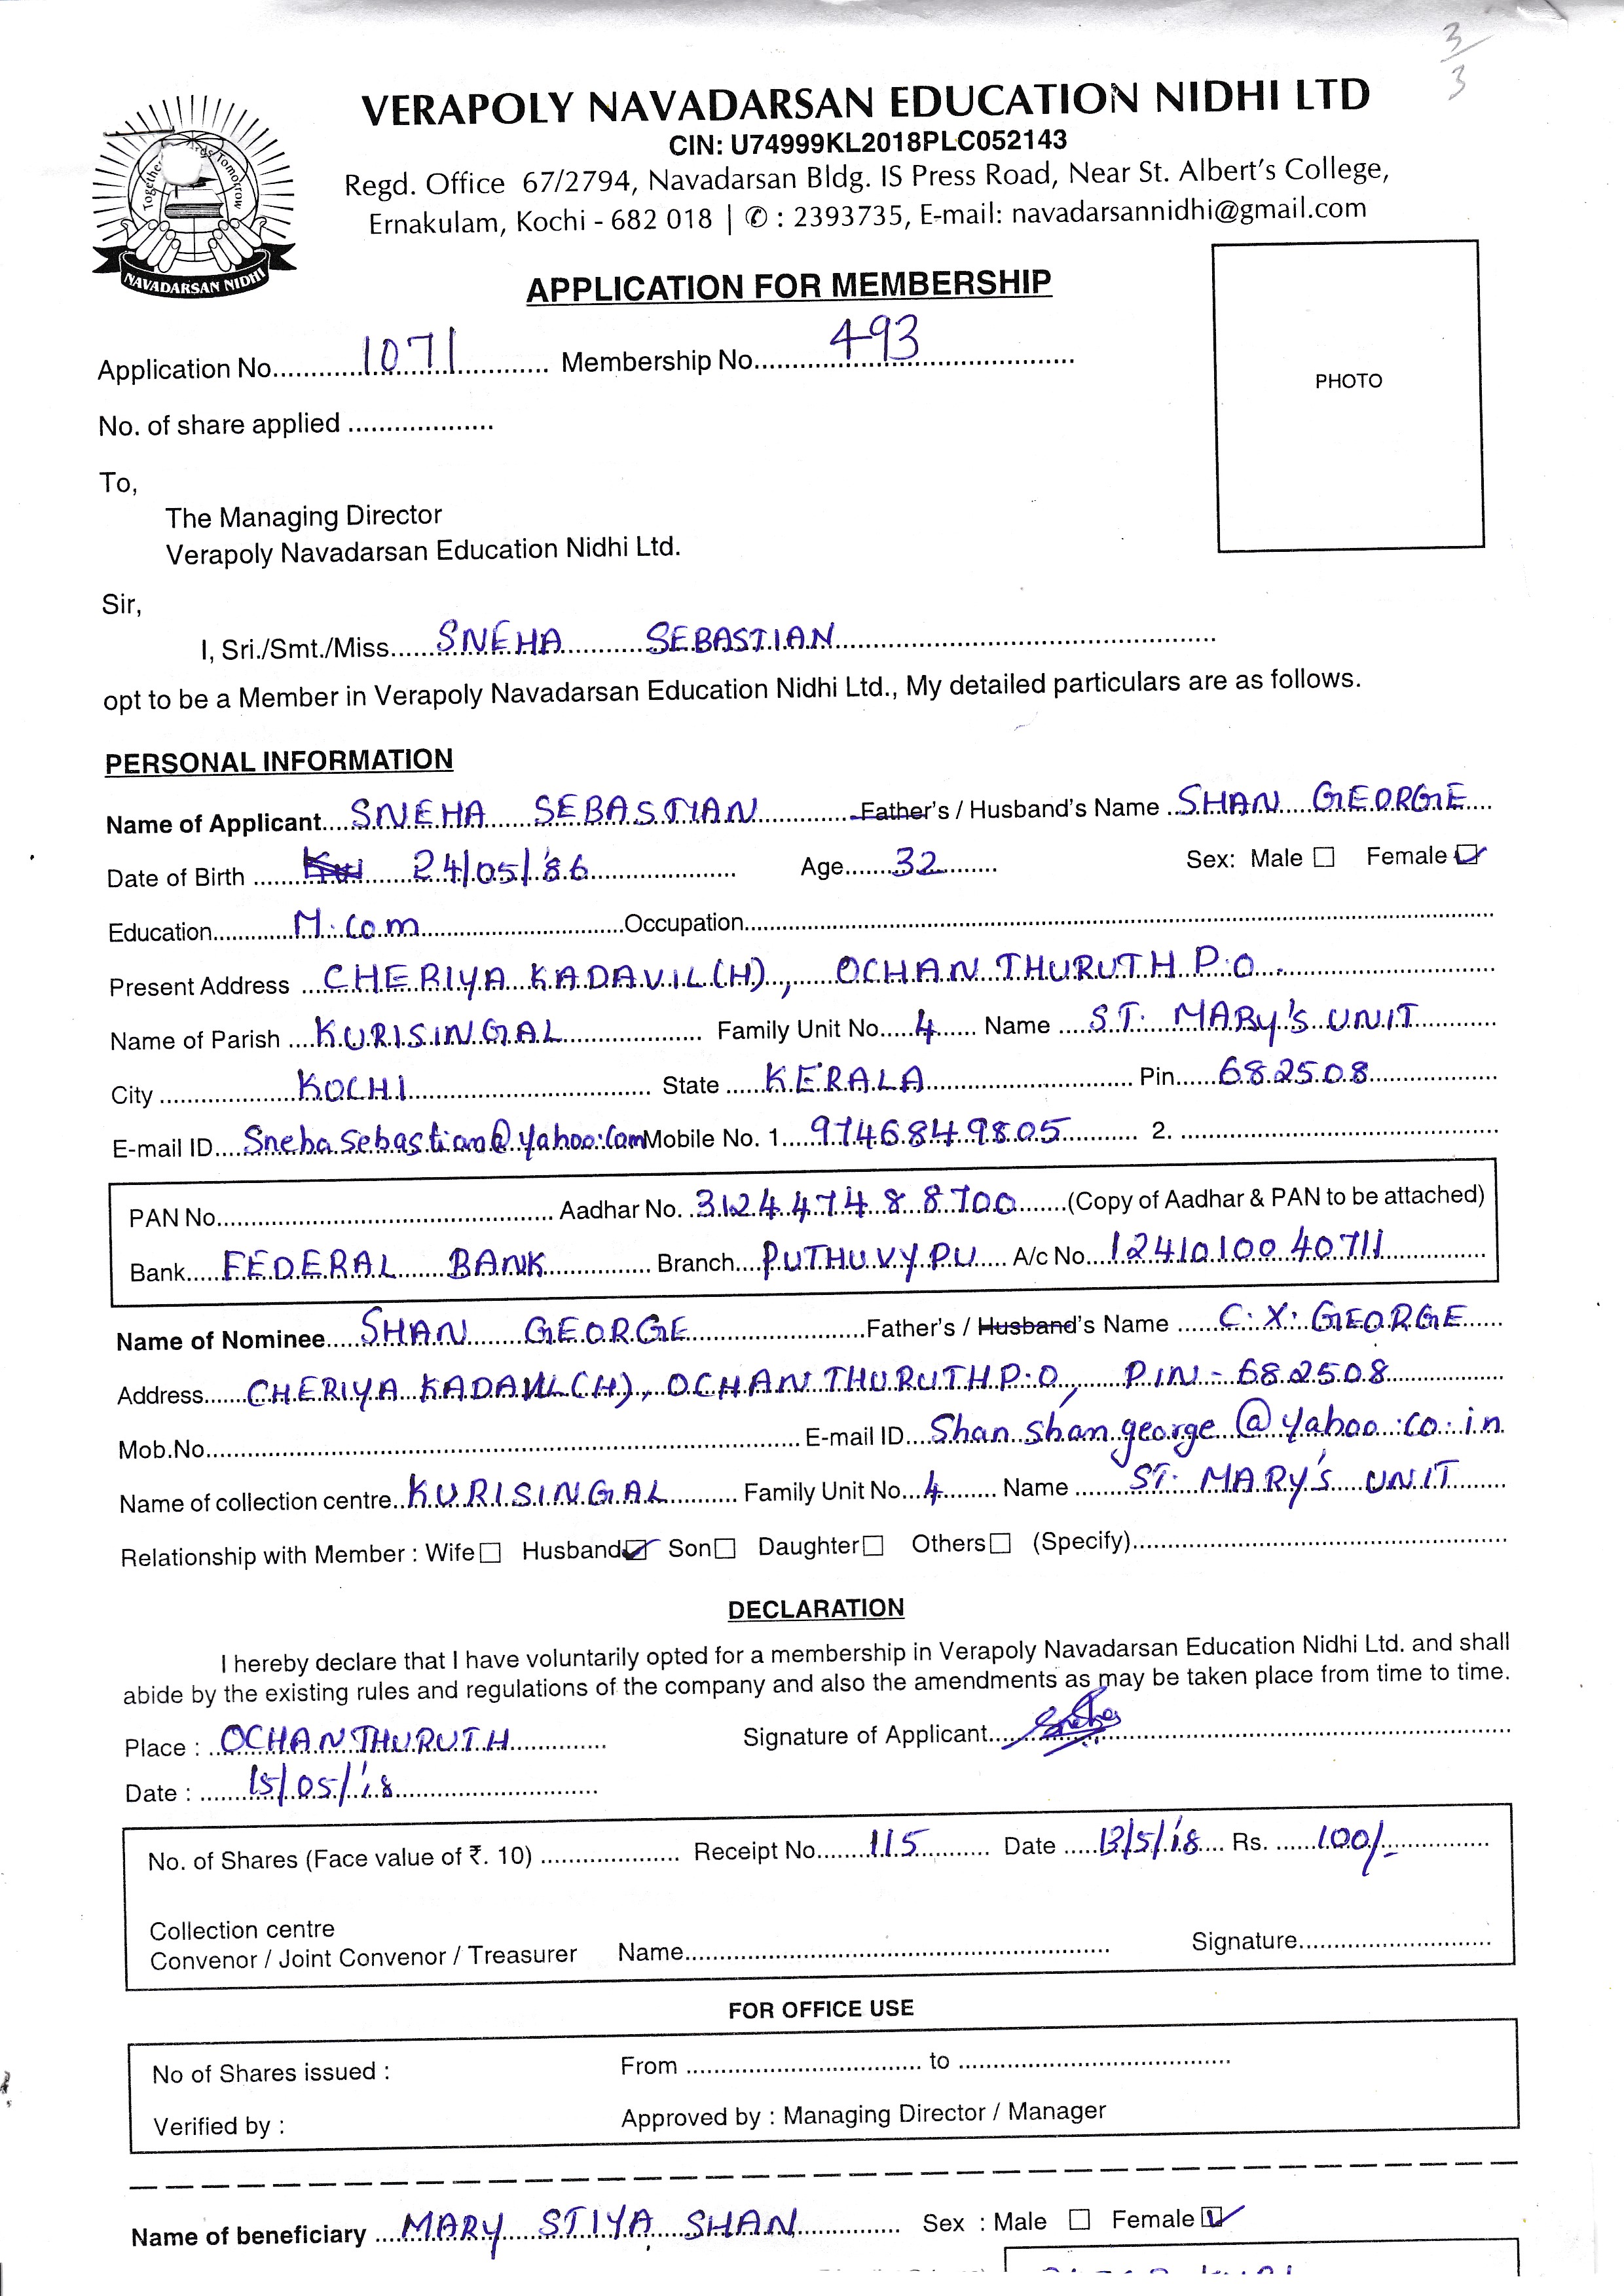 3/3
VERAPOLY NAVADARSAN EDUCATION NIDHI LTD
CIN: U74999KL2018PLC052143
Regd. Office 67/2794, Navadarsan Bldg. IS Press Road, Near St. Albert's College,
Ernakulam, Kochi - 682 018 | ✆ : 2393735, E-mail: navadarsannidhi@gmail.com
Tomorrow
NAVADARSAN NIDHI
APPLICATION FOR MEMBERSHIP
PHOTO
Application No. 1071 Membership No. 493
No. of share applied
To,
The Managing Director
Verapoly Navadarsan Education Nidhi Ltd.
Sir,
I, Sri./Smt./Miss SNEHA SEBASTIAN
opt to be a Member in Verapoly Navadarsan Education Nidhi Ltd., My detailed particulars are as follows.
PERSONAL INFORMATION
Name of Applicant SNEHA SEBASTIAN Father's / Husband's Name SHAN GEORGE
Date of Birth 24/05/'86 Age 32 Sex: Male ☐ Female ☑
Education M.Com Occupation
Present Address CHERIYA KADAVIL(H), OCHAN THURUTH P.O.
Name of Parish KURISINGAL Family Unit No. 4 Name ST. MARY'S UNIT
City KOCHI State KERALA Pin 682508
E-mail ID SnehaSebastian@yahoo.Com Mobile No. 1. 9746849805 2.
PAN No. Aadhar No. 3124 4748 8700 (Copy of Aadhar & PAN to be attached)
Bank FEDERAL BANK Branch PUTHUVYPU A/c No. 12410100 40711
Name of Nominee SHAN GEORGE Father's / Husband's Name C. X. GEORGE
Address CHERIYA KADAVIL(H), OCHAN THURUTH P.O, PIN - 682508
Mob.No. E-mail ID Shanshangeorge@yahoo.co.in
Name of collection centre KURISINGAL Family Unit No. 4 Name ST. MARY'S UNIT
Relationship with Member : Wife ☐ Husband ☑ Son ☐ Daughter ☐ Others ☐ (Specify)
DECLARATION
I hereby declare that I have voluntarily opted for a membership in Verapoly Navadarsan Education Nidhi Ltd. and shall
abide by the existing rules and regulations of the company and also the amendments as may be taken place from time to time.
Place : OCHANTHURUTH Signature of Applicant Sneha
Date : 15/05/'18
No. of Shares (Face value of ₹. 10) Receipt No. 115 Date 13/5/'18 Rs. 100/-
Collection centre
Convenor / Joint Convenor / Treasurer Name Signature
FOR OFFICE USE
No of Shares issued : From to
Verified by : Approved by : Managing Director / Manager
Name of beneficiary MARY STIYA SHAN Sex : Male ☐ Female ☑